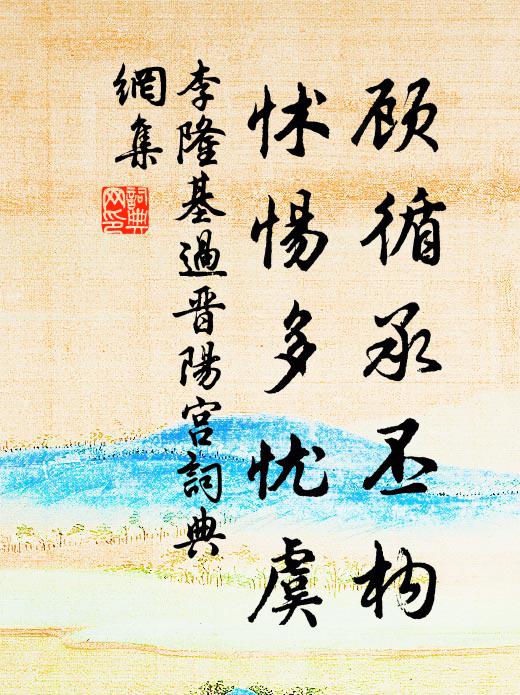 顾循承丕构
怵惕多忧虞
李隆基過晋陽宫詞典
網集
詞典
网印